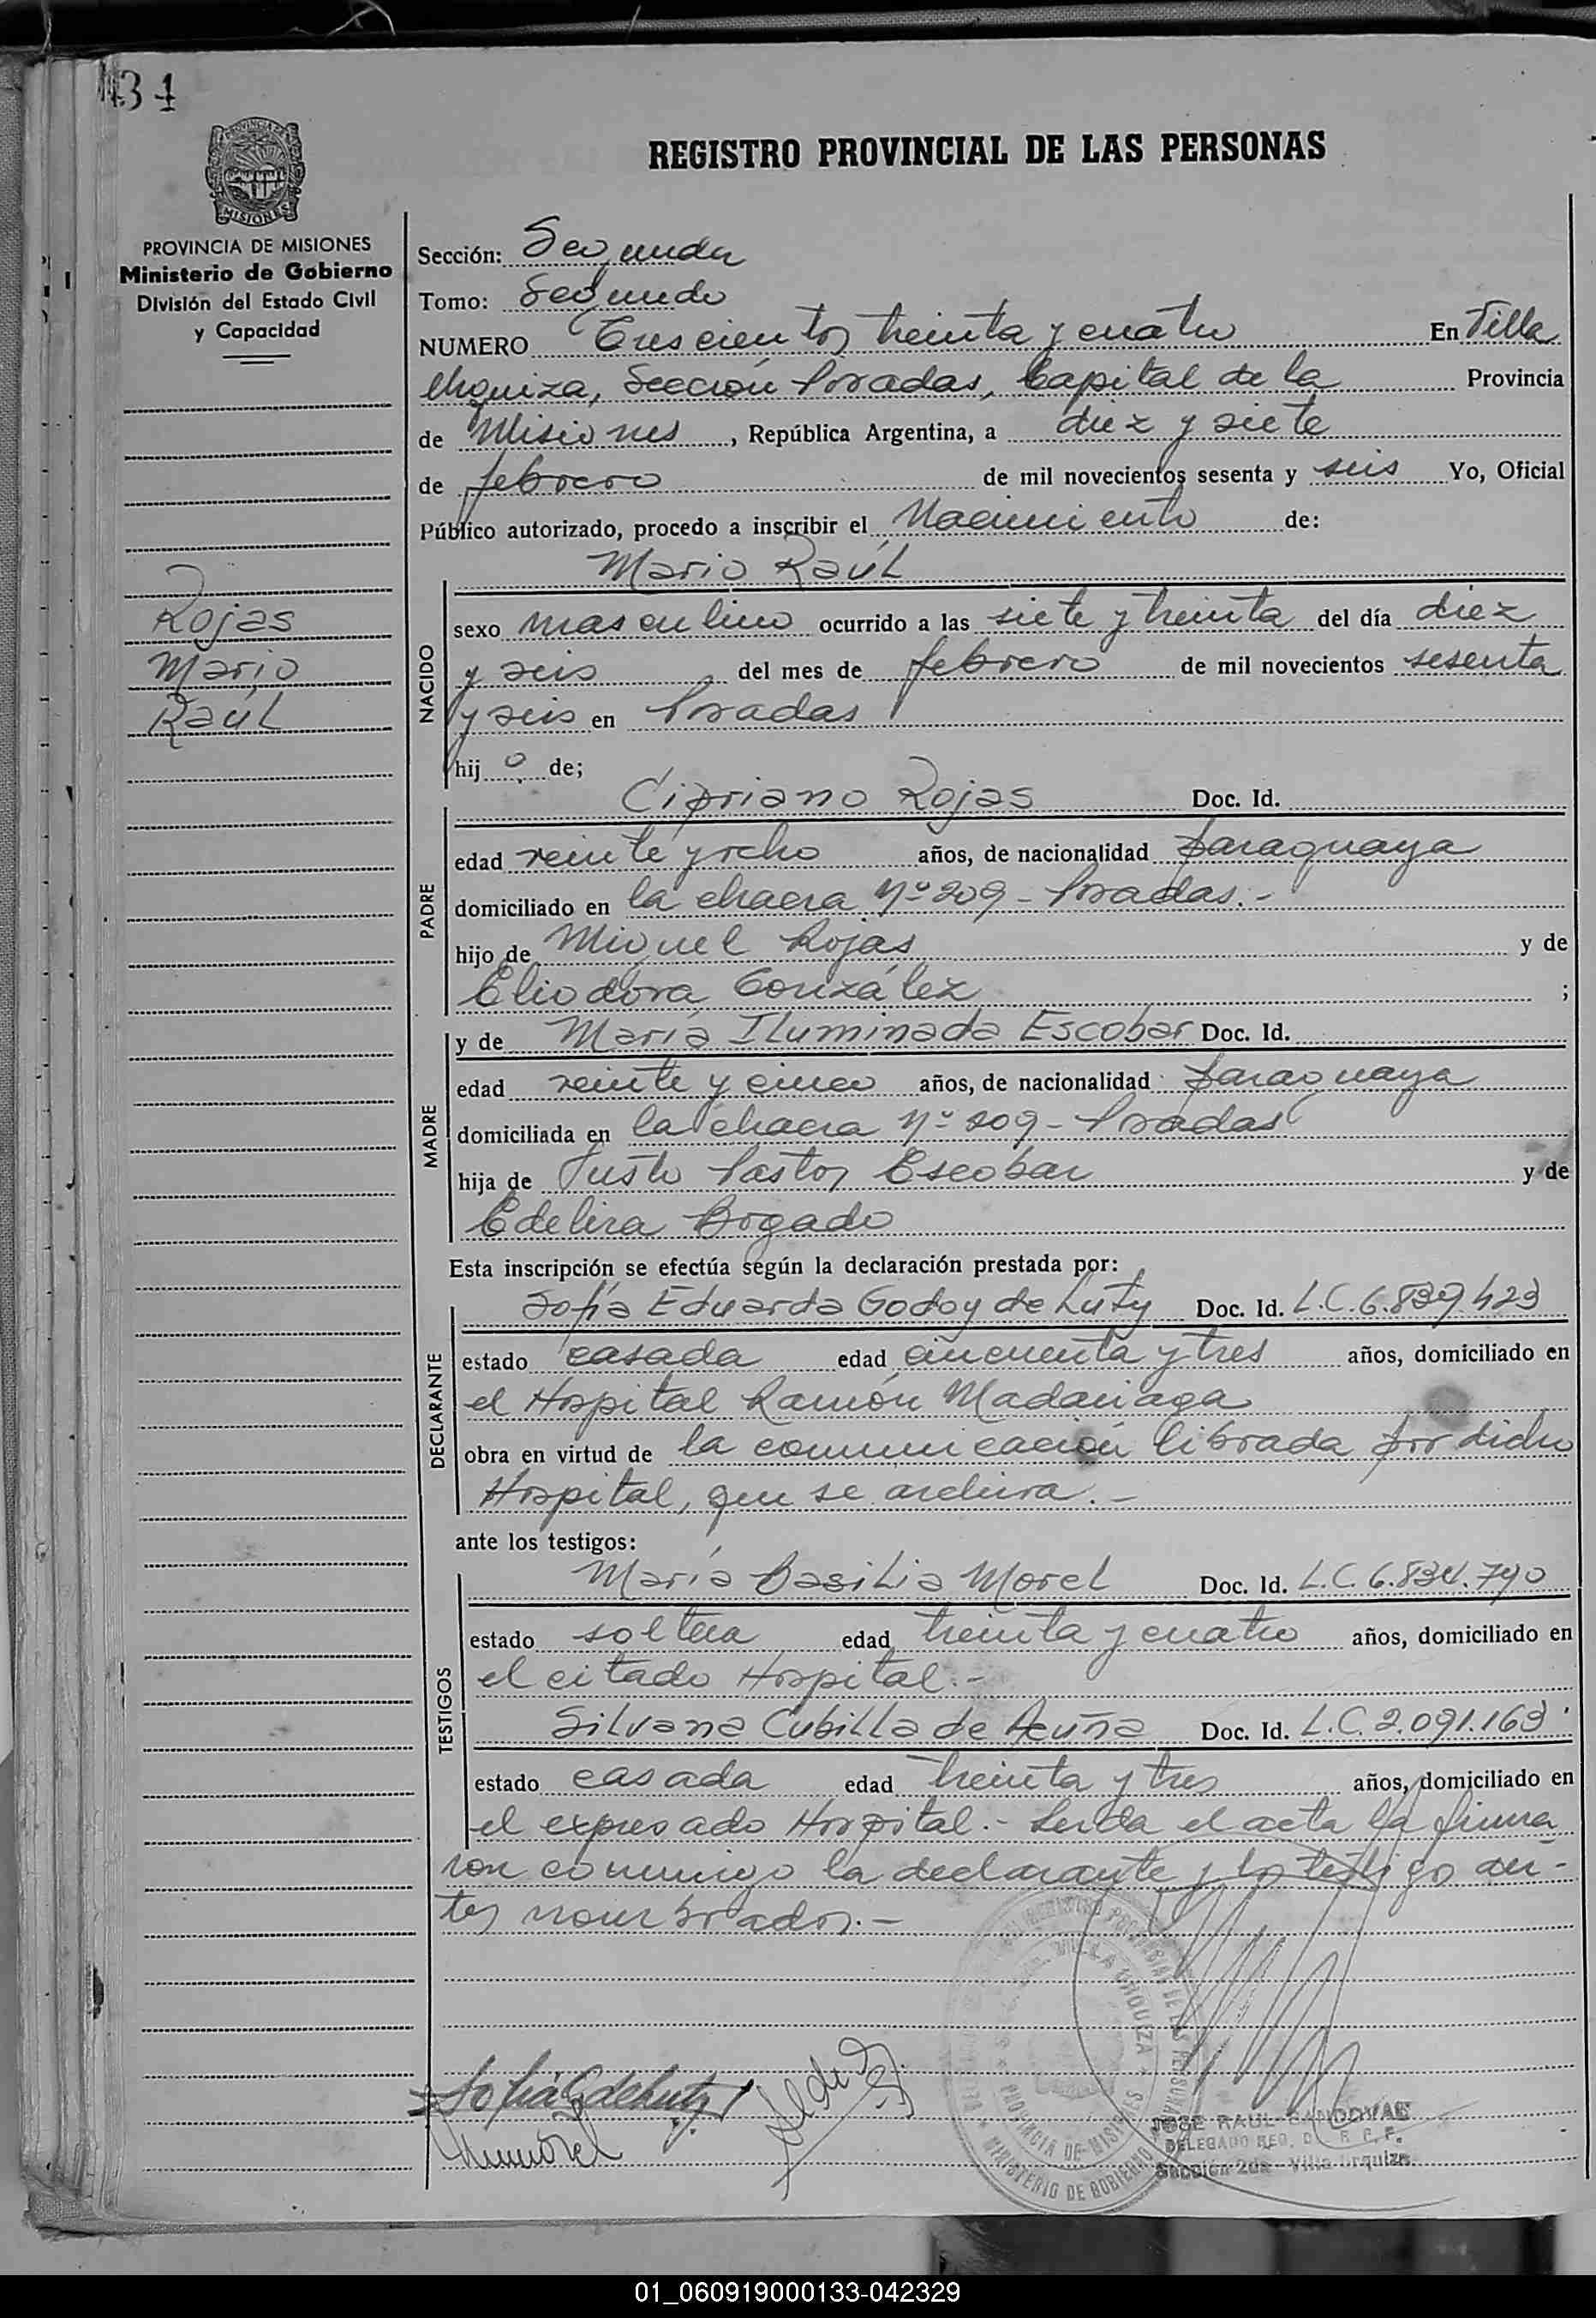 431
PROVINCIA DE MISIONES
MISIONES
PROVINCIA DE MISIONES
Ministerio de Gobierno
División del Estado Civil
y Capacidad
Rojas
Mario
Raúl
REGISTRO PROVINCIAL DE LAS PERSONAS
Sección: Segunda
Tomo: Segundo
NUMERO Trescientos treinta y cuatro En Villa
Urquiza, Sección Posadas, Capital de la Provincia
de Misiones, República Argentina, a diez y siete
de febrero de mil novecientos sesenta y seis Yo, Oficial
Público autorizado, procedo a inscribir el Nacimiento de:
Mario Raúl
NACIDO
sexo masculino ocurrido a las siete y treinta del día diez
y seis del mes de febrero de mil novecientos sesenta
y seis en Posadas
hij o de;
Cipriano Rojas Doc. Id.
PADRE
edad veinte y ocho años, de nacionalidad paraguaya
domiciliado en la chacra Nº 209 - Posadas.-
hijo de Miguel Rojas y de
Eliodora González ;
y de María Iluminada Escobar Doc. Id.
MADRE
edad veinte y cinco años, de nacionalidad paraguaya
domiciliada en la chacra Nº 209 - Posadas
hija de Justo Pastor Escobar y de
Edelira Bogado
Esta inscripción se efectúa según la declaración prestada por:
Sofía Eduarda Godoy de Luty Doc. Id. L.C. 6.839.423
DECLARANTE
estado casada edad cincuenta y tres años, domiciliado en
el Hospital Ramón Madariaga
obra en virtud de la comunicación librada por dicho
Hospital, que se archiva.-
ante los testigos:
María Basilia Morel Doc. Id. L.C. 6.834.790
TESTIGOS
estado soltera edad treinta y cuatro años, domiciliado en
el citado Hospital.-
Silvana Cubilla de Acuña Doc. Id. L.C. 2.091.163
estado casada edad treinta y tres años, domiciliado en
el expresado Hospital.- Leída el acta la firma
ron conmigo la declarante y los testigo an-
tes nombrados.-
Sofía G de Lutz
Mmorel
JOSE RAUL SANDOVAL
DELEGADO REG. D R. P. P.
Sección 2da - Villa Urquiza
VILLA URQUIZA
PROVINCIA DE MISIONES
MINISTERIO DE GOBIERNO
01_060919000133-042329